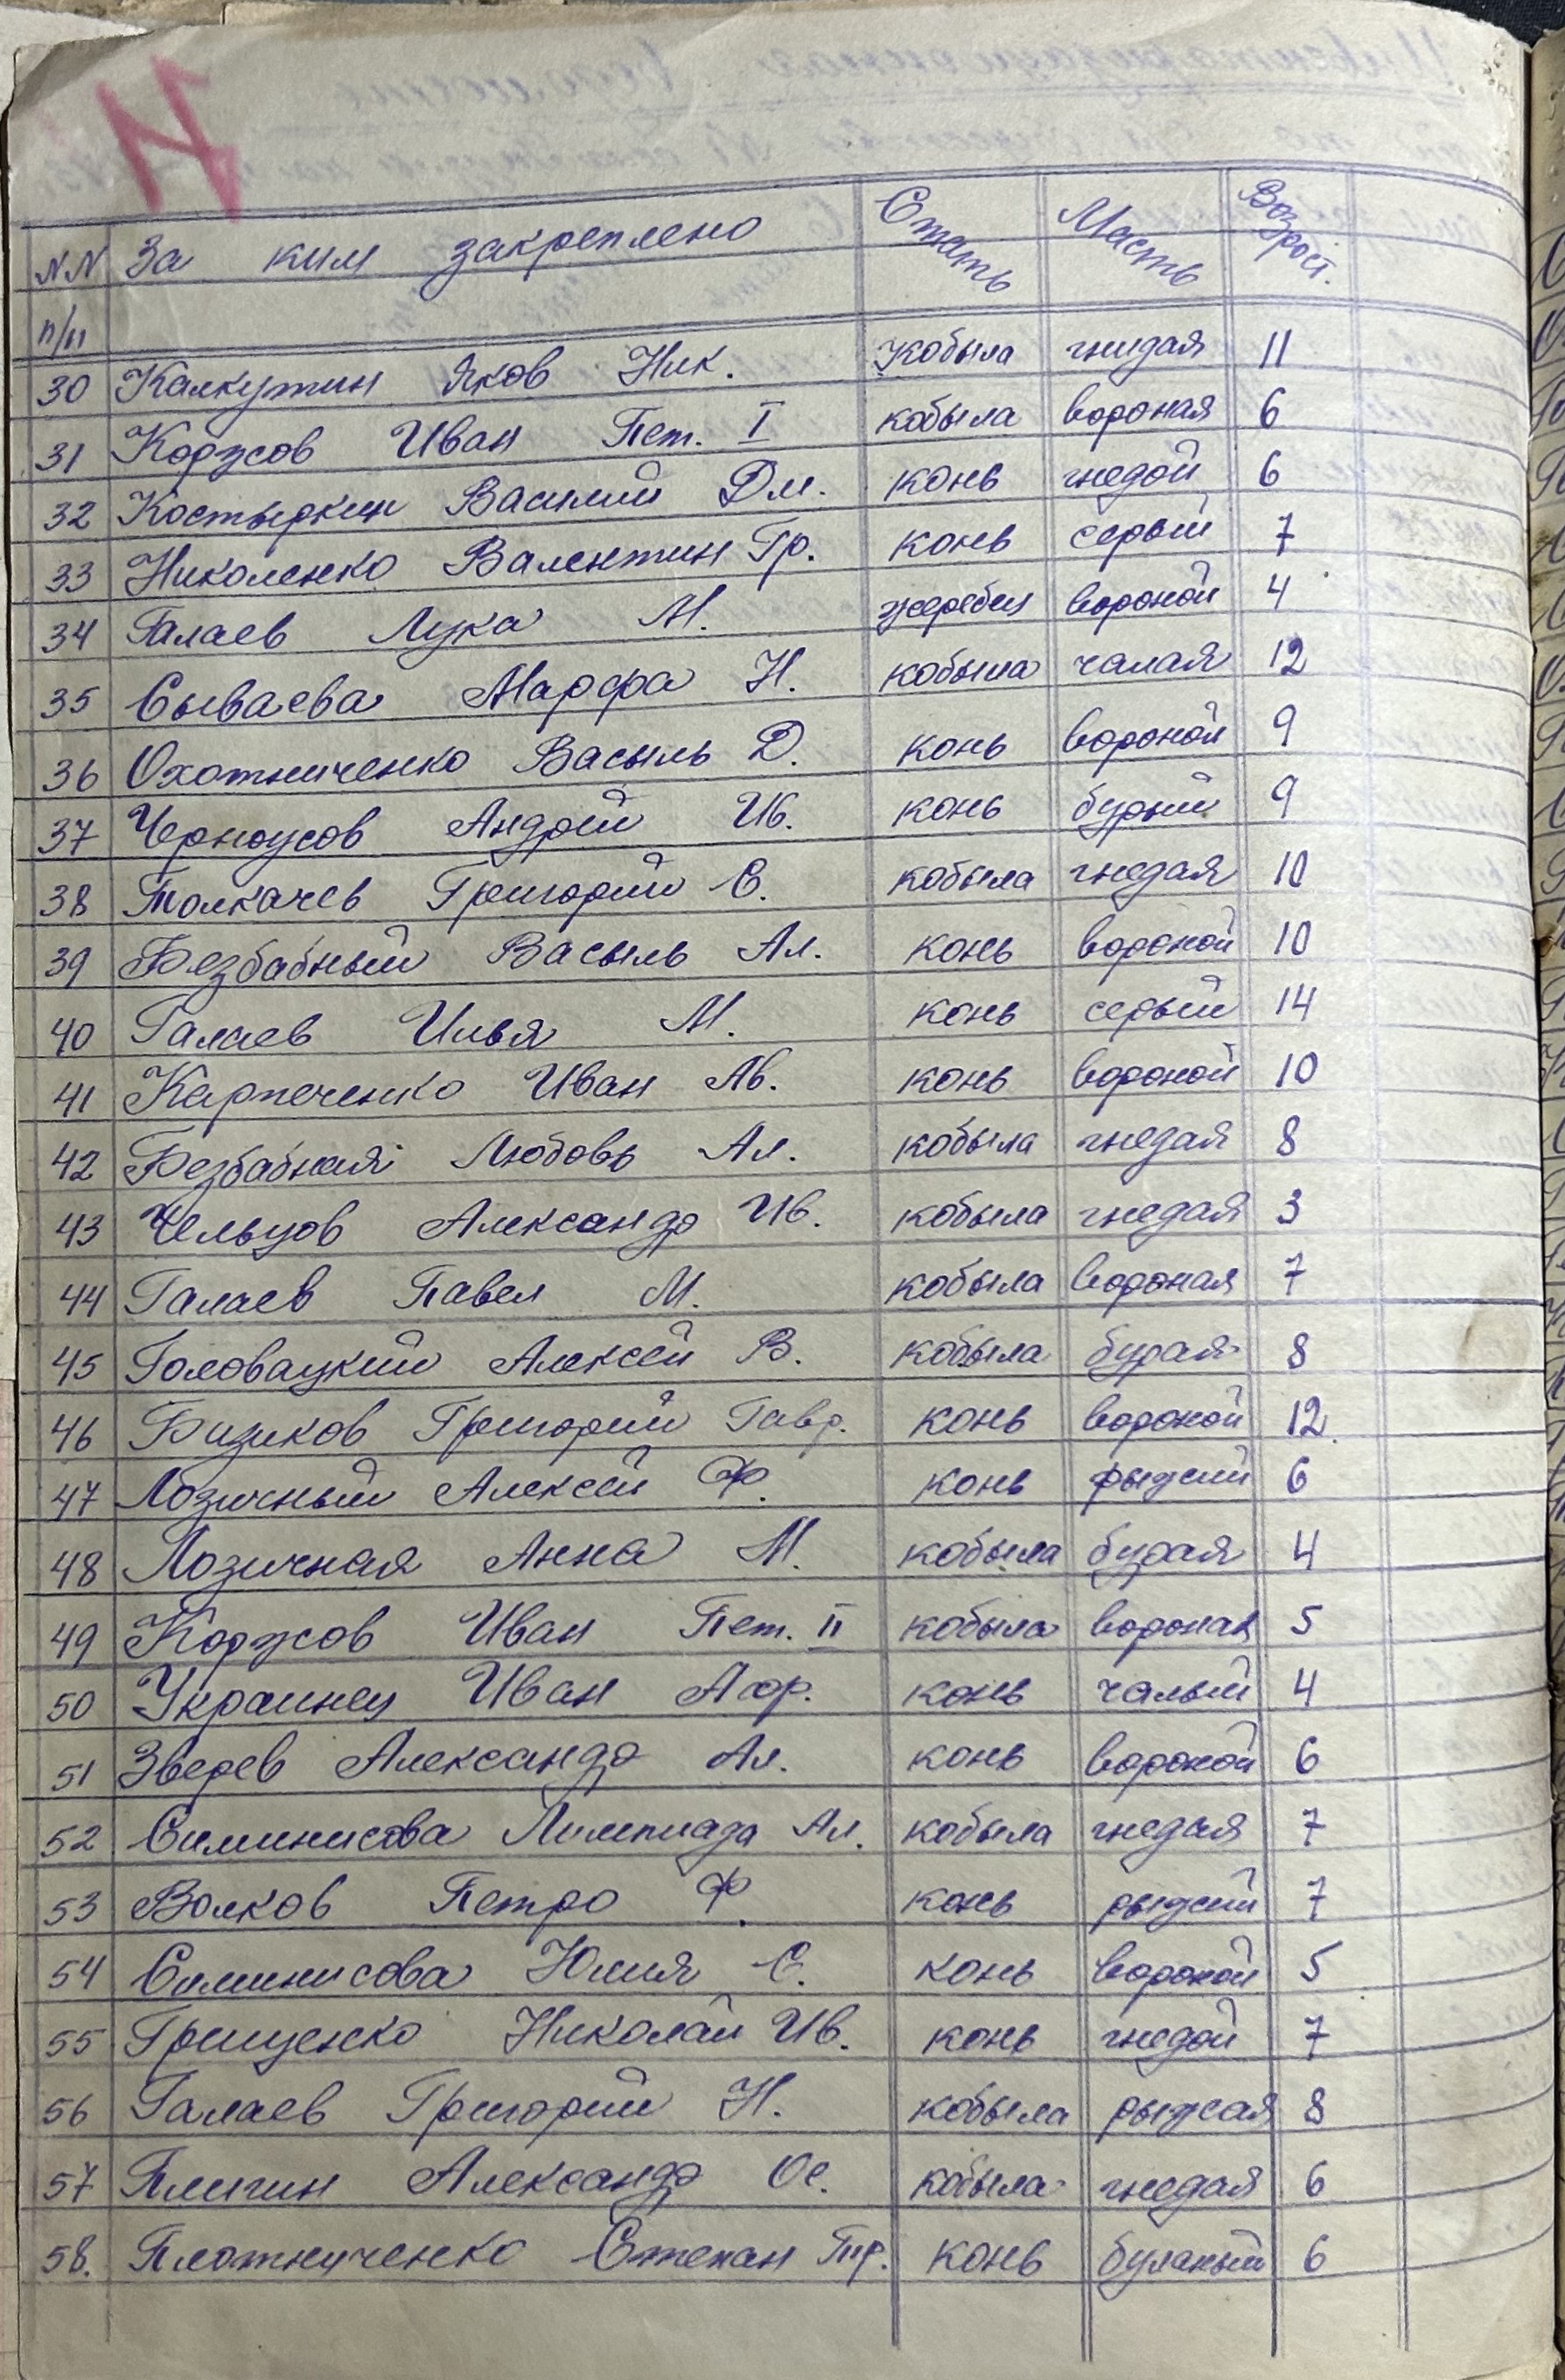 NN За ким закреплено Стать Масть Возрост.
п/п
30 Калкутин Яков Ник. Кобыла гнидая 11
31 Коржов Иван Пет. I кобыла вороная 6
32 Костыркин Василий Дм. конь гнедой 6
33 Николенко Валентин Гр. конь серый 7
34 Галаев Лука М. жеребец вороной 4
35 Сываева Марфа Н. кобыла чалая 12
36 Охотниченко Васыль Д. конь вороной 9
37 Черноусов Андрей Ив. конь бурый 9
38 Толкачев Григорий С. кобыла гнедая 10
39 Безбабный Васыль Ал. конь вороной 10
40 Галаев Илья М. конь серый 14
41 Карпеченко Иван Ав. конь вороной 10
42 Безбабная Любовь Ал. кобыла гнедая 8
43 Чельцов Александр Ив. кобыла гнедая 3
44 Галаев Павел М. кобыла вороная 7
45 Головацкий Алексей В. кобыла бурая 8
46 Бизиков Григорий Гавр. конь вороной 12
47 Лозичный Алексей Ф. конь рыжий 6
48 Лозичная Анна М. кобыла бурая 4
49 Коржов Иван Пет. II кобыла вороная 5
50 Украинец Иван Афр. конь чалый 4
51 Зверев Александр Ал. конь вороной 6
52 Симинисова Лимпиада Ал. кобыла гнедая 7
53 Волков Петро Ф. конь рыжий 7
54 Симинисова Юлия С. конь вороной 5
55 Грищенко Николай Ив. конь гнедой 7
56 Галаев Григорий Н. кобыла рыжая 8
57 Плигин Александр Ос. кобыла гнедая 6
58. Плотниченко Степан Пр. конь буланый 6